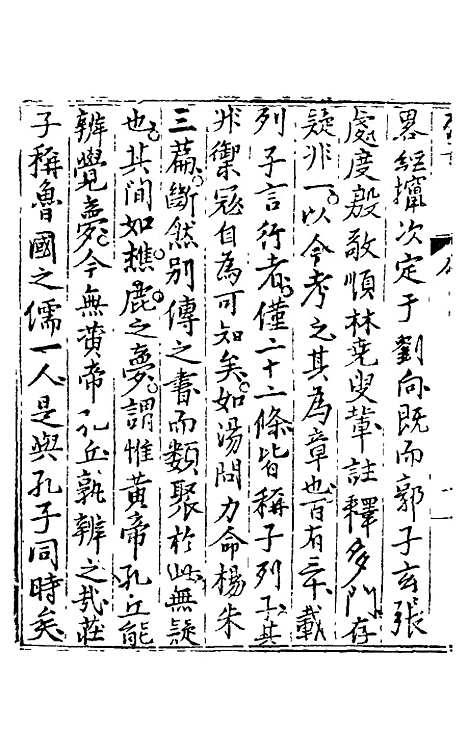 畧經攛次定于劉向既而郭子玄張
處度殷敬順林堯叟輩註釋多門存
疑非一以今考之其為章也百有三十載
列子言行者僅二十二條皆稱子列子其
非禦寇自為可知矣如湯問力命楊朱
三篇斷然別傳之書而類聚於此無疑
也其間如樵鹿之夢謂惟黃帝孔丘能
辨覺夢今無黃帝孔丘孰辨之哉莊
子稱魯國之儒一人是與孔子同時矣